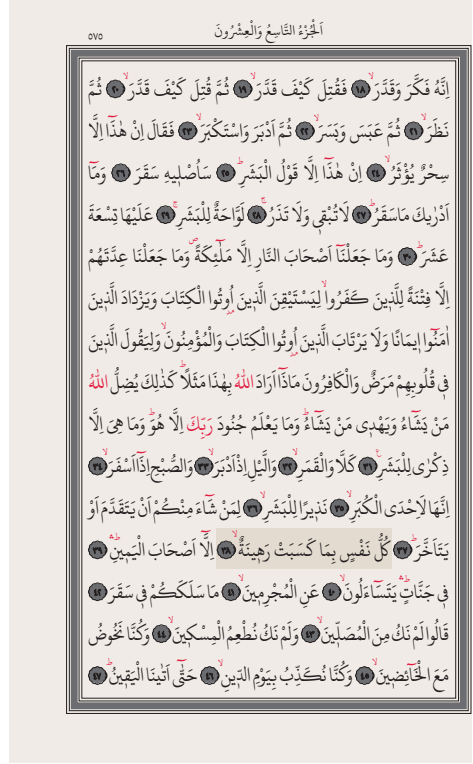 ٥٧٥ اَلْجُزْءُ التَّاسِعُ وَالْعِشْرُونَ
اِنَّهُ فَكَّرَ وَقَدَّرَۙ ﴿١٨﴾ فَقُتِلَ كَيْفَ قَدَّرَۙ ﴿١٩﴾ ثُمَّ قُتِلَ كَيْفَ قَدَّرَۙ ﴿٢٠﴾ ثُمَّ
نَظَرَۙ ﴿٢١﴾ ثُمَّ عَبَسَ وَبَسَرَۙ ﴿٢٢﴾ ثُمَّ اَدْبَرَ وَاسْتَكْبَرَۙ ﴿٢٣﴾ فَقَالَ اِنْ هٰذَٓا اِلَّا
سِحْرٌ يُؤْثَرُۙ ﴿٢٤﴾ اِنْ هٰذَٓا اِلَّا قَوْلُ الْبَشَرِۜ ﴿٢٥﴾ سَاُصْلٖيهِ سَقَرَ ﴿٢٦﴾ وَمَٓا
اَدْرٰيكَ مَاسَقَرُۜ ﴿٢٧﴾ لَاتُبْقٖى وَلَا تَذَرُۚ ﴿٢٨﴾ لَوَّاحَةٌ لِلْبَشَرِۚ ﴿٢٩﴾ عَلَيْهَا تِسْعَةَ
عَشَرَۜ ﴿٣٠﴾ وَمَا جَعَلْنَٓا اَصْحَابَ النَّارِ اِلَّا مَلٰٓئِكَةًۖ وَمَا جَعَلْنَا عِدَّتَهُمْ
اِلَّا فِتْنَةً لِلَّذٖينَ كَفَرُواۙ لِيَسْتَيْقِنَ الَّذٖينَ اُو۫تُوا الْكِتَابَ وَيَزْدَادَ الَّذٖينَ
اٰمَنُٓوا اٖيمَانًا وَلَا يَرْتَابَ الَّذٖينَ اُو۫تُوا الْكِتَابَ وَالْمُؤْمِنُونَۙ وَلِيَقُولَ الَّذٖينَ
فٖى قُلُوبِهِمْ مَرَضٌ وَالْكَافِرُونَ مَاذَٓا اَرَادَ اللّٰهُ بِهٰذَا مَثَلًاۜ كَذٰلِكَ يُضِلُّ اللّٰهُ
مَنْ يَشَٓاءُ وَيَهْدٖى مَنْ يَشَٓاءُۜ وَمَا يَعْلَمُ جُنُودَ رَبِّكَ اِلَّا هُوَۜ وَمَا هِىَ اِلَّا
ذِكْرٰى لِلْبَشَرِ۟ ﴿٣١﴾ كَلَّا وَالْقَمَرِۙ ﴿٣٢﴾ وَالَّيْلِ اِذْ اَدْبَرَۙ ﴿٣٣﴾ وَالصُّبْحِ اِذَٓا اَسْفَرَۙ ﴿٣٤﴾
اِنَّهَا لَاِحْدَى الْكُبَرِۙ ﴿٣٥﴾ نَذٖيرًا لِلْبَشَرِۙ ﴿٣٦﴾ لِمَنْ شَٓاءَ مِنْكُمْ اَنْ يَتَقَدَّمَ اَوْ
يَتَاَخَّرَۜ ﴿٣٧﴾ كُلُّ نَفْسٍ بِمَا كَسَبَتْ رَهٖينَةٌۙ ﴿٣٨﴾ اِلَّٓا اَصْحَابَ الْيَمٖينِۜۛ ﴿٣٩﴾
فٖى جَنَّاتٍۜۛ يَتَسَٓاءَلُونَۙ ﴿٤٠﴾ عَنِ الْمُجْرِمٖينَۙ ﴿٤١﴾ مَا سَلَكَكُمْ فٖى سَقَرَ ﴿٤٢﴾
قَالُوا لَمْ نَكُ مِنَ الْمُصَلّٖينَۙ ﴿٤٣﴾ وَلَمْ نَكُ نُطْعِمُ الْمِسْكٖينَۙ ﴿٤٤﴾ وَكُنَّا نَخُوضُ
مَعَ الْخَٓائِضٖينَۙ ﴿٤٥﴾ وَكُنَّا نُكَذِّبُ بِيَوْمِ الدّٖينِۙ ﴿٤٦﴾ حَتّٰٓى اَتٰينَا الْيَقٖينُۜ ﴿٤٧﴾